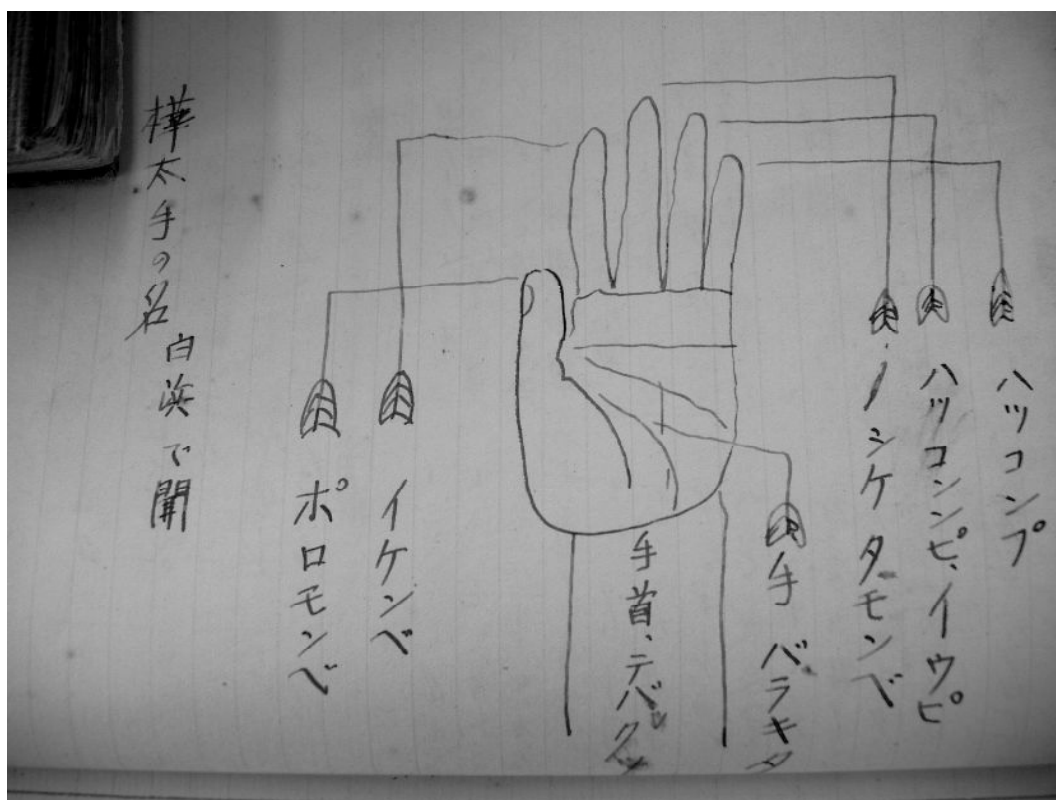 ハツコンプ
ハツコンピ、イウピ
ノシケタモンベ
手 バラキタ
手首、テバ
イケンベ
ポロモンベ
樺太手の名
白浜で聞